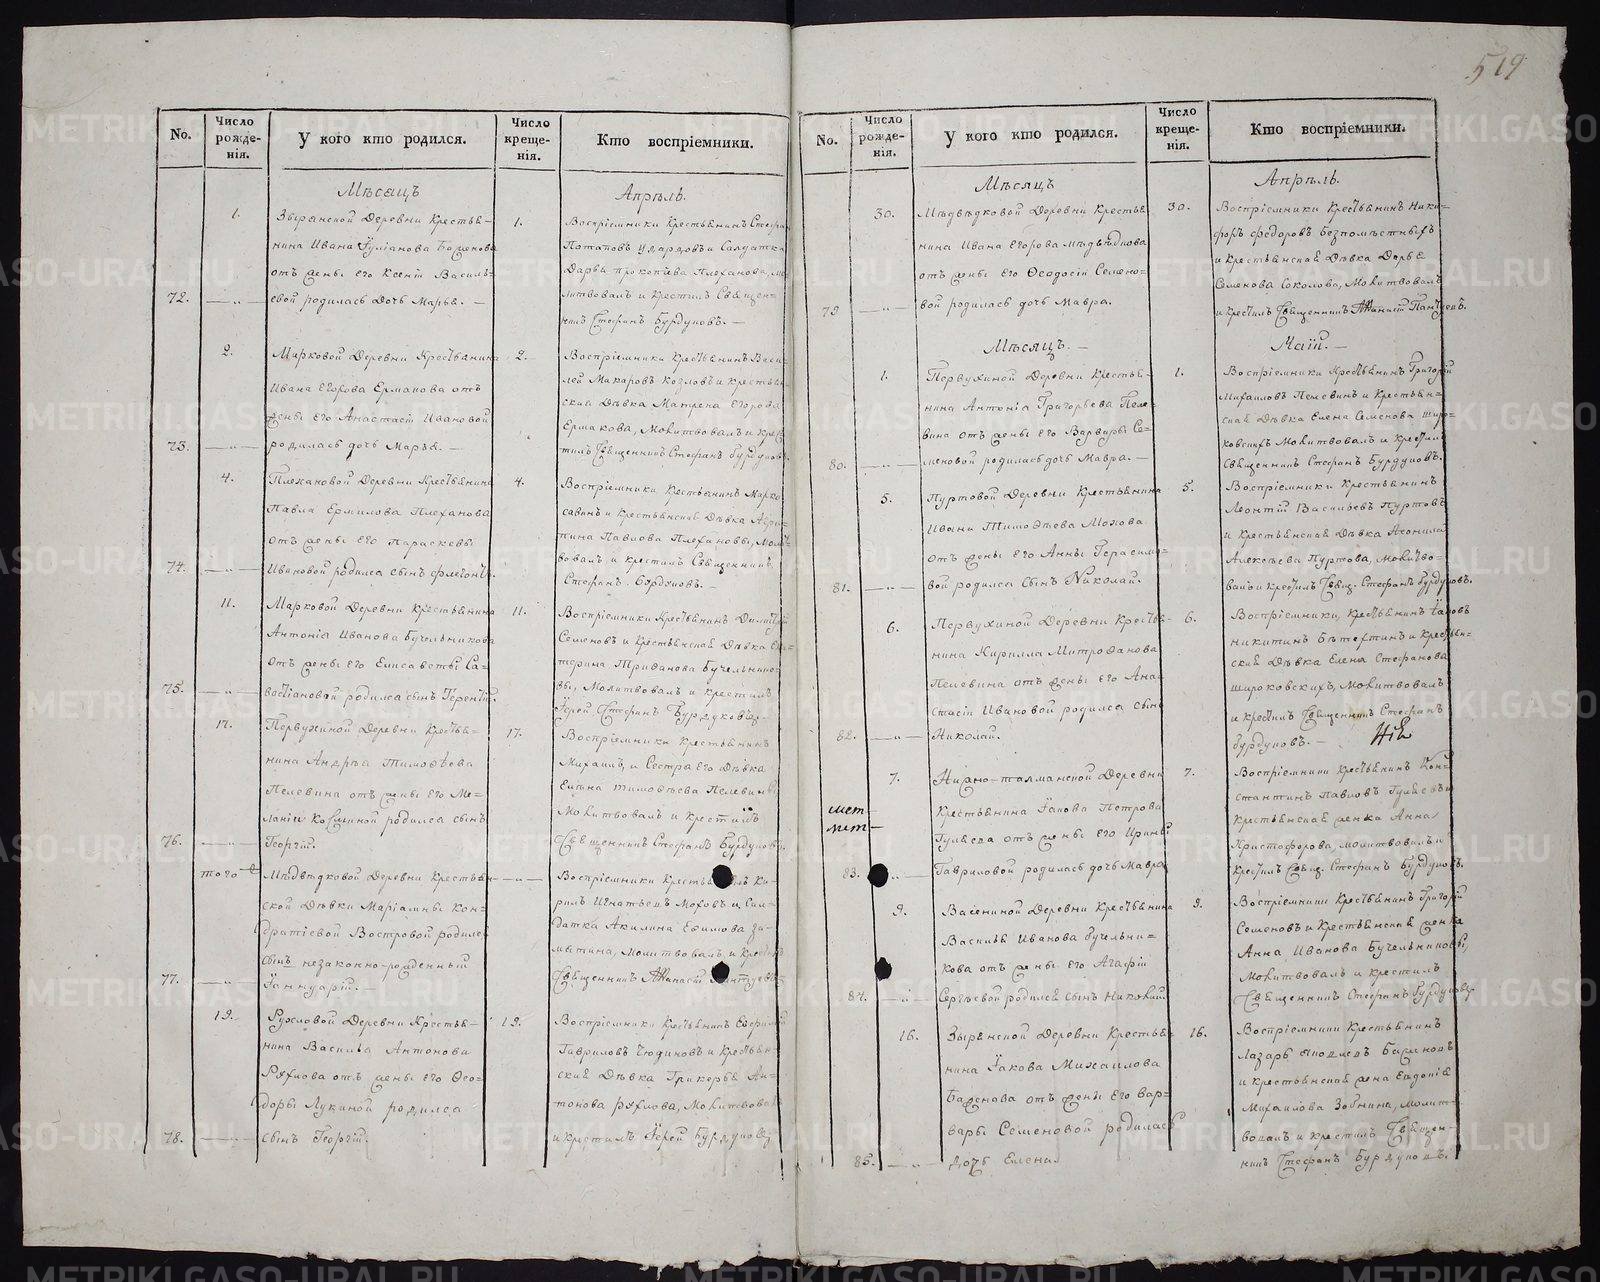 519
No.
Число рожде-нія.
У кого кто родился.
Число креще-нія.
Кто воспріемники.
Мѣсяцъ
Апрѣль.
1.
Зырянской Деревни Крестья-
нина Ивана Іуліанова Баженова
отъ жены его Ксеніи Василь-
72.
евой родилась дочь Марья.
1.
Воспріемники Крестьянинъ Стефанъ
Потаповъ и Салдатка
Дарья Прокопіева Плеханова, мо-
литвовалъ и крестилъ Священ-
никъ Стефанъ Бурдуковъ.
2.
Марковой Деревни Крестьянина
Ивана Егорова Ермакова отъ
жены его Анастасіи Ивановой
73.
родилась дочь Марья.
2.
Воспріемники Крестьянинъ Васи-
лей Макаровъ Козловъ и крестьян-
ская Дѣвка Матрена Егорова
Ермакова, Молитвовалъ и крес-
тилъ Священникъ Стефанъ Бурдуковъ
4.
Плехановой Деревни Крестьянина
Павла Ермилова Плеханова
отъ жены его Параскевы
74.
Ивановой родился сынъ Флегонтъ.
4.
Воспріемники Крестьянинъ
и Крестьянская Дѣвка
Павлова Плехановы,
вовалъ и крестилъ Священникъ
Стефанъ Бурдуковъ.
11.
Марковой Деревни Крестьянина
Антонія Иванова Бучельникова
отъ жены его Елисаветы Са-
75.
вастіановой родился сынъ Терентій.
11.
Воспріемники Крестьянинъ Димитрій
Семеновъ и Крестьянская Дѣвка Ека-
терина Трифанова Бучельнико-
вы, Молитвовалъ и крестилъ
Іерей Стефанъ Бурдуковъ.
17.
Первухиной Деревни Крестья-
нина Андрѣа Тимофѣева
Пелевина отъ жены его Ме-
ланіи Козминой родился сынъ
76.
Георгій.
17.
Воспріемники Крестьянинъ
Михаилъ, и Сестра его Дѣвка
Елена Тимофѣева Пелевины
Молитвовалъ и крестилъ
Священникъ Стефанъ Бурдуковъ.
того
Мѣдвѣдковой Деревни Крестьян-
ской Дѣвки Маріамны Кон-
дратіевой Востровой родился
сынъ незаконно-рожденный
77.
Іаннуарій.
Воспріемники Крестьянинъ Ки-
рилъ Игнатьевъ Моховъ и Сал-
датка Акилина Ефимова За-
мятина, Молитвовалъ и крестилъ
Священникъ Афанасій Пантуевъ
19.
Рухловой Деревни Крестья-
нина Василья Антонова
Рухлова отъ жены его Фео-
доры Лукиной родился
78.
сынъ Георгій.
19.
Воспріемники Крестьянинъ Евфимій
Гавриловъ Чюдиновъ и Крестьян-
ская Дѣвка Гликерья Ан-
тонова Рухлова, Молитвовалъ
и крестилъ Іерей Бурдуковъ
No.
Число рожде-нія.
У кого кто родился.
Число креще-нія.
Кто воспріемники.
Мѣсяцъ
Апрѣль.
30.
Мѣдвѣдковой Деревни Крестья-
нина Ивана Егорова Мѣдвѣдкова
отъ жены его Ѳеодосіи Семено-
79
вой родилась дочь Мавра.
30.
Воспріемники Крестьянинъ Ники-
форъ Федоровъ Безпомѣстныхъ
и Крестьянская Дѣвка Дарья
Семенова Соколова, Молитвовалъ
и крестилъ Священникъ Афанасій Пантуевъ.
Мѣсяцъ.
Маій.
1.
Первухиной Деревни Крестья-
нина Антонія Григорьева Пеле-
вина отъ жены его Варвары Се-
80.
меновой родилась дочь Мавра.
1.
Воспріемники Крестьянинъ Григорій
Михаиловъ Пелевинъ и Крестьян-
ская Дѣвка Елена Семенова Широ-
ковскихъ Молитвовалъ и крестилъ
Священникъ Стефанъ Бурдуковъ.
5.
Пуртовой Деревни Крестьянина
Ивана Тимофѣева Мохова
отъ жены его Анны Герасимо-
81.
вой родился сынъ Николай.
5.
Воспріемники Крестьянинъ
Леонтій Васильевъ Пуртовъ
и Крестьянская Дѣвка Афонила
Алексѣева Пуртова, Молитво-
валъ и крестилъ Свящ. Стефанъ Бурдуковъ.
6.
Первухиной Деревни Крестья-
нина Кирилла Митрофанова
Пелевина отъ жены его Ана-
стасіи Ивановой родился сынъ
82.
Николай.
6.
Воспріемники, Крестьянинъ Іаковъ
Никитинъ Бѣтехтинъ и Крестьян-
ская Дѣвка Елена Стефанова
Широковскихъ, Молитвовалъ
и крестилъ Священникъ Стефанъ
Бурдуковъ.
7.
Нижно-талманской Деревни
Крестьянина Іакова Петрова
Гуляева отъ жены его Ирины
83.
Гавриловой родилась дочь Мавра
7.
Воспріемники Крестьянинъ Кон-
стантинъ Павловъ Гуляевъ и
Крестьянская женка Анна
Христофорова, Молитвовалъ и
крестилъ Свящ. Стефанъ Бурдуковъ.
9.
Васениной Деревни Крестьянина
Василья Иванова Бучельни-
кова отъ жены его Агафіи
84.
Сергѣевой родился сынъ Николай
9.
Воспріемники Крестьянинъ Григорій
Семеновъ и Крестьянская женка
Анна Иванова Бучельниковы,
Молитвовалъ и крестилъ
Священникъ Стефанъ Бурдуковъ.
16.
Зырянской Деревни Крестья-
нина Іакова Михаилова
Баженова отъ жены его Вар-
вары Семеновой родилась
85.
дочь Елена.
16.
Воспріемники Крестьянинъ
Лазарь Баженовъ
и крестьянская жена Евдокія
Михаилова Зобнина, Молит-
вовалъ и крестилъ Священ-
никъ Стефанъ Бурдуковъ.
METRIKI.GASO-URAL.RU